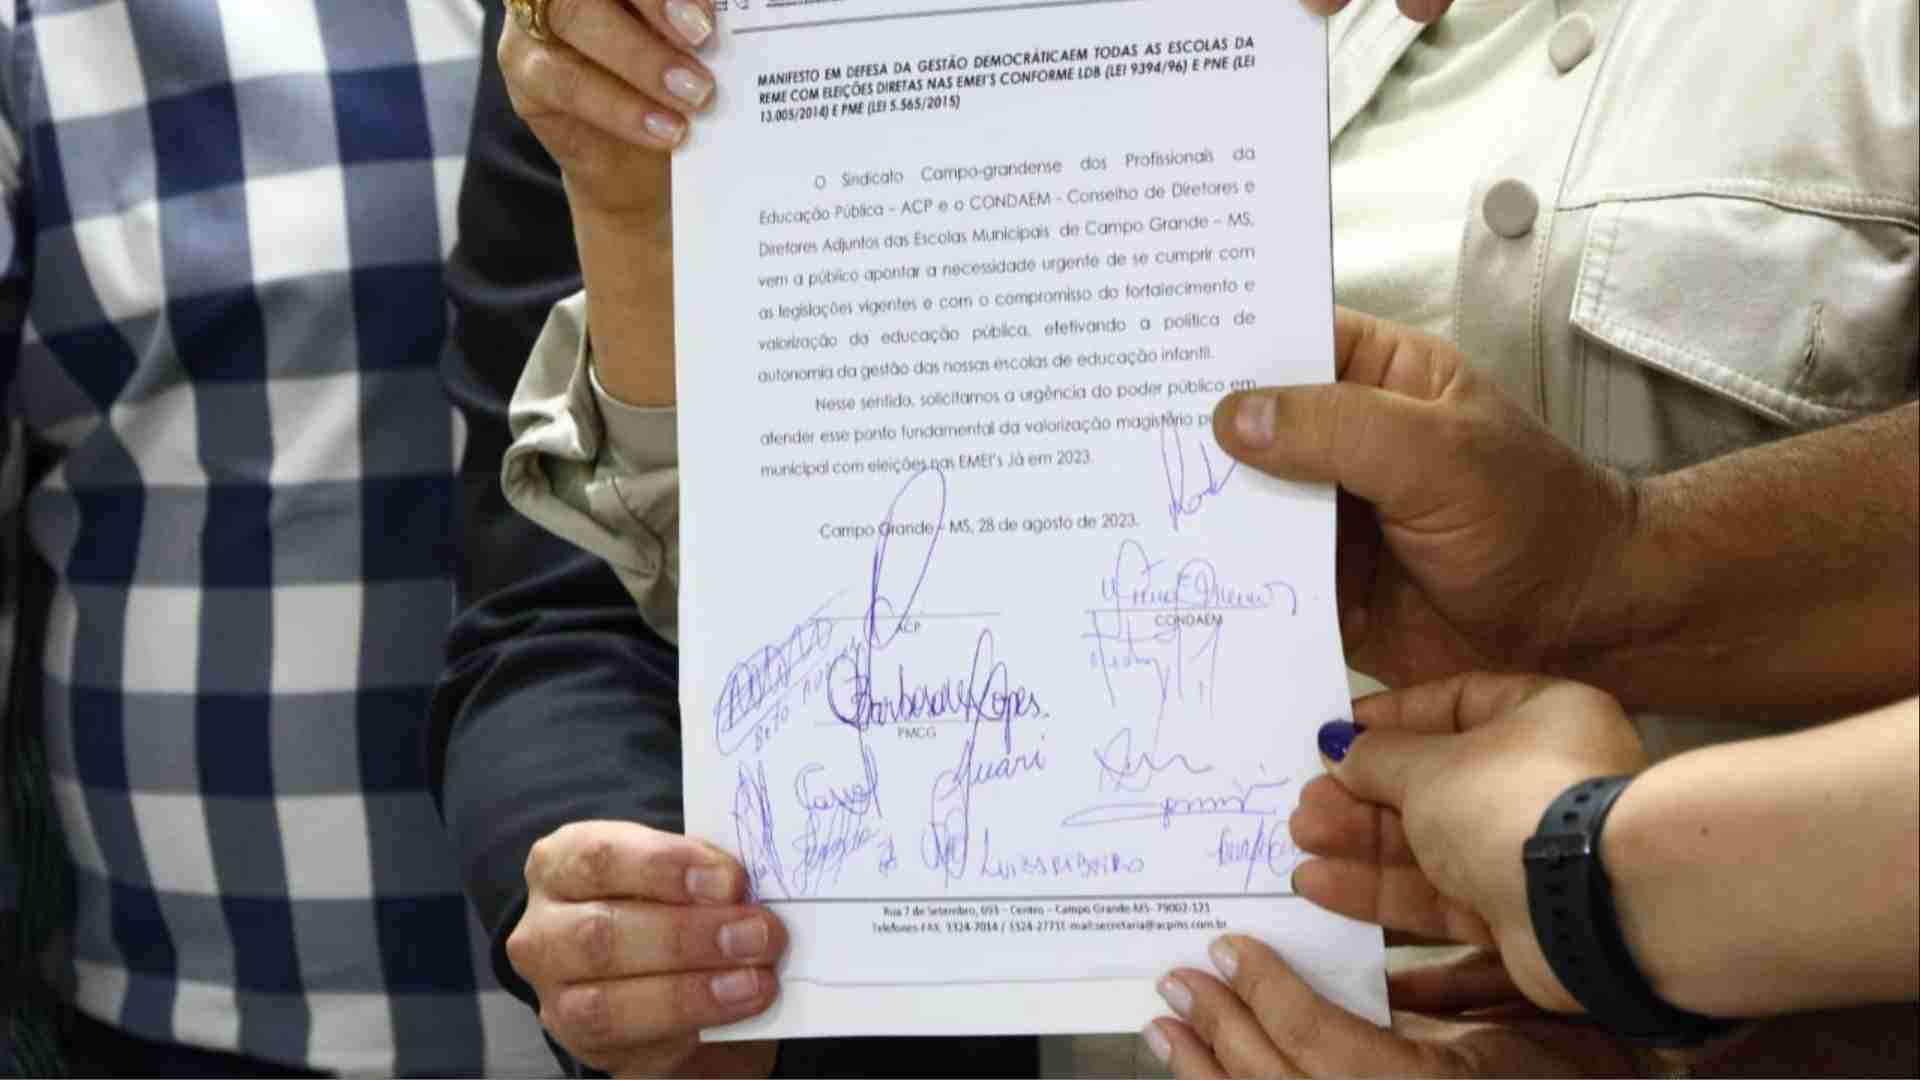 MANIFESTO EM DEFESA DA GESTÃO DEMOCRÁTICAEM TODAS AS ESCOLAS DA
REME COM ELEIÇÕES DIRETAS NAS EMEI'S CONFORME LDB (LEI 9394/96) E PNE (LEI
13.005/2014) E PME (LEI 5.565/2015)
O Sindicato Campo-grandense dos Profissionais da
Educação Pública - ACP e o CONDAEM - Conselho de Diretores e
Diretores Adjuntos das Escolas Municipais de Campo Grande – MS,
vem a público apontar a necessidade urgente de se cumprir com
as legislações vigentes e com o compromisso do fortalecimento e
valorização da educação pública, efetivando a política de
autonomia da gestão das nossas escolas de educação infantil.
Nesse sentido, solicitamos a urgência do poder público em
atender esse ponto fundamental da valorização magistério
municipal com eleições nas EMEI's Já em 2023.
Campo Grande - MS, 28 de agosto de 2023.
ACP
CONDAEM
Barbosa Lopes
PMCG
Rua 7 de Setembro, 693 – Centro – Campo Grande-MS- 79002-121
Telefones-FAX: 3324-7014 / 3324-2771E-mail:secretaria@acpms.com.br